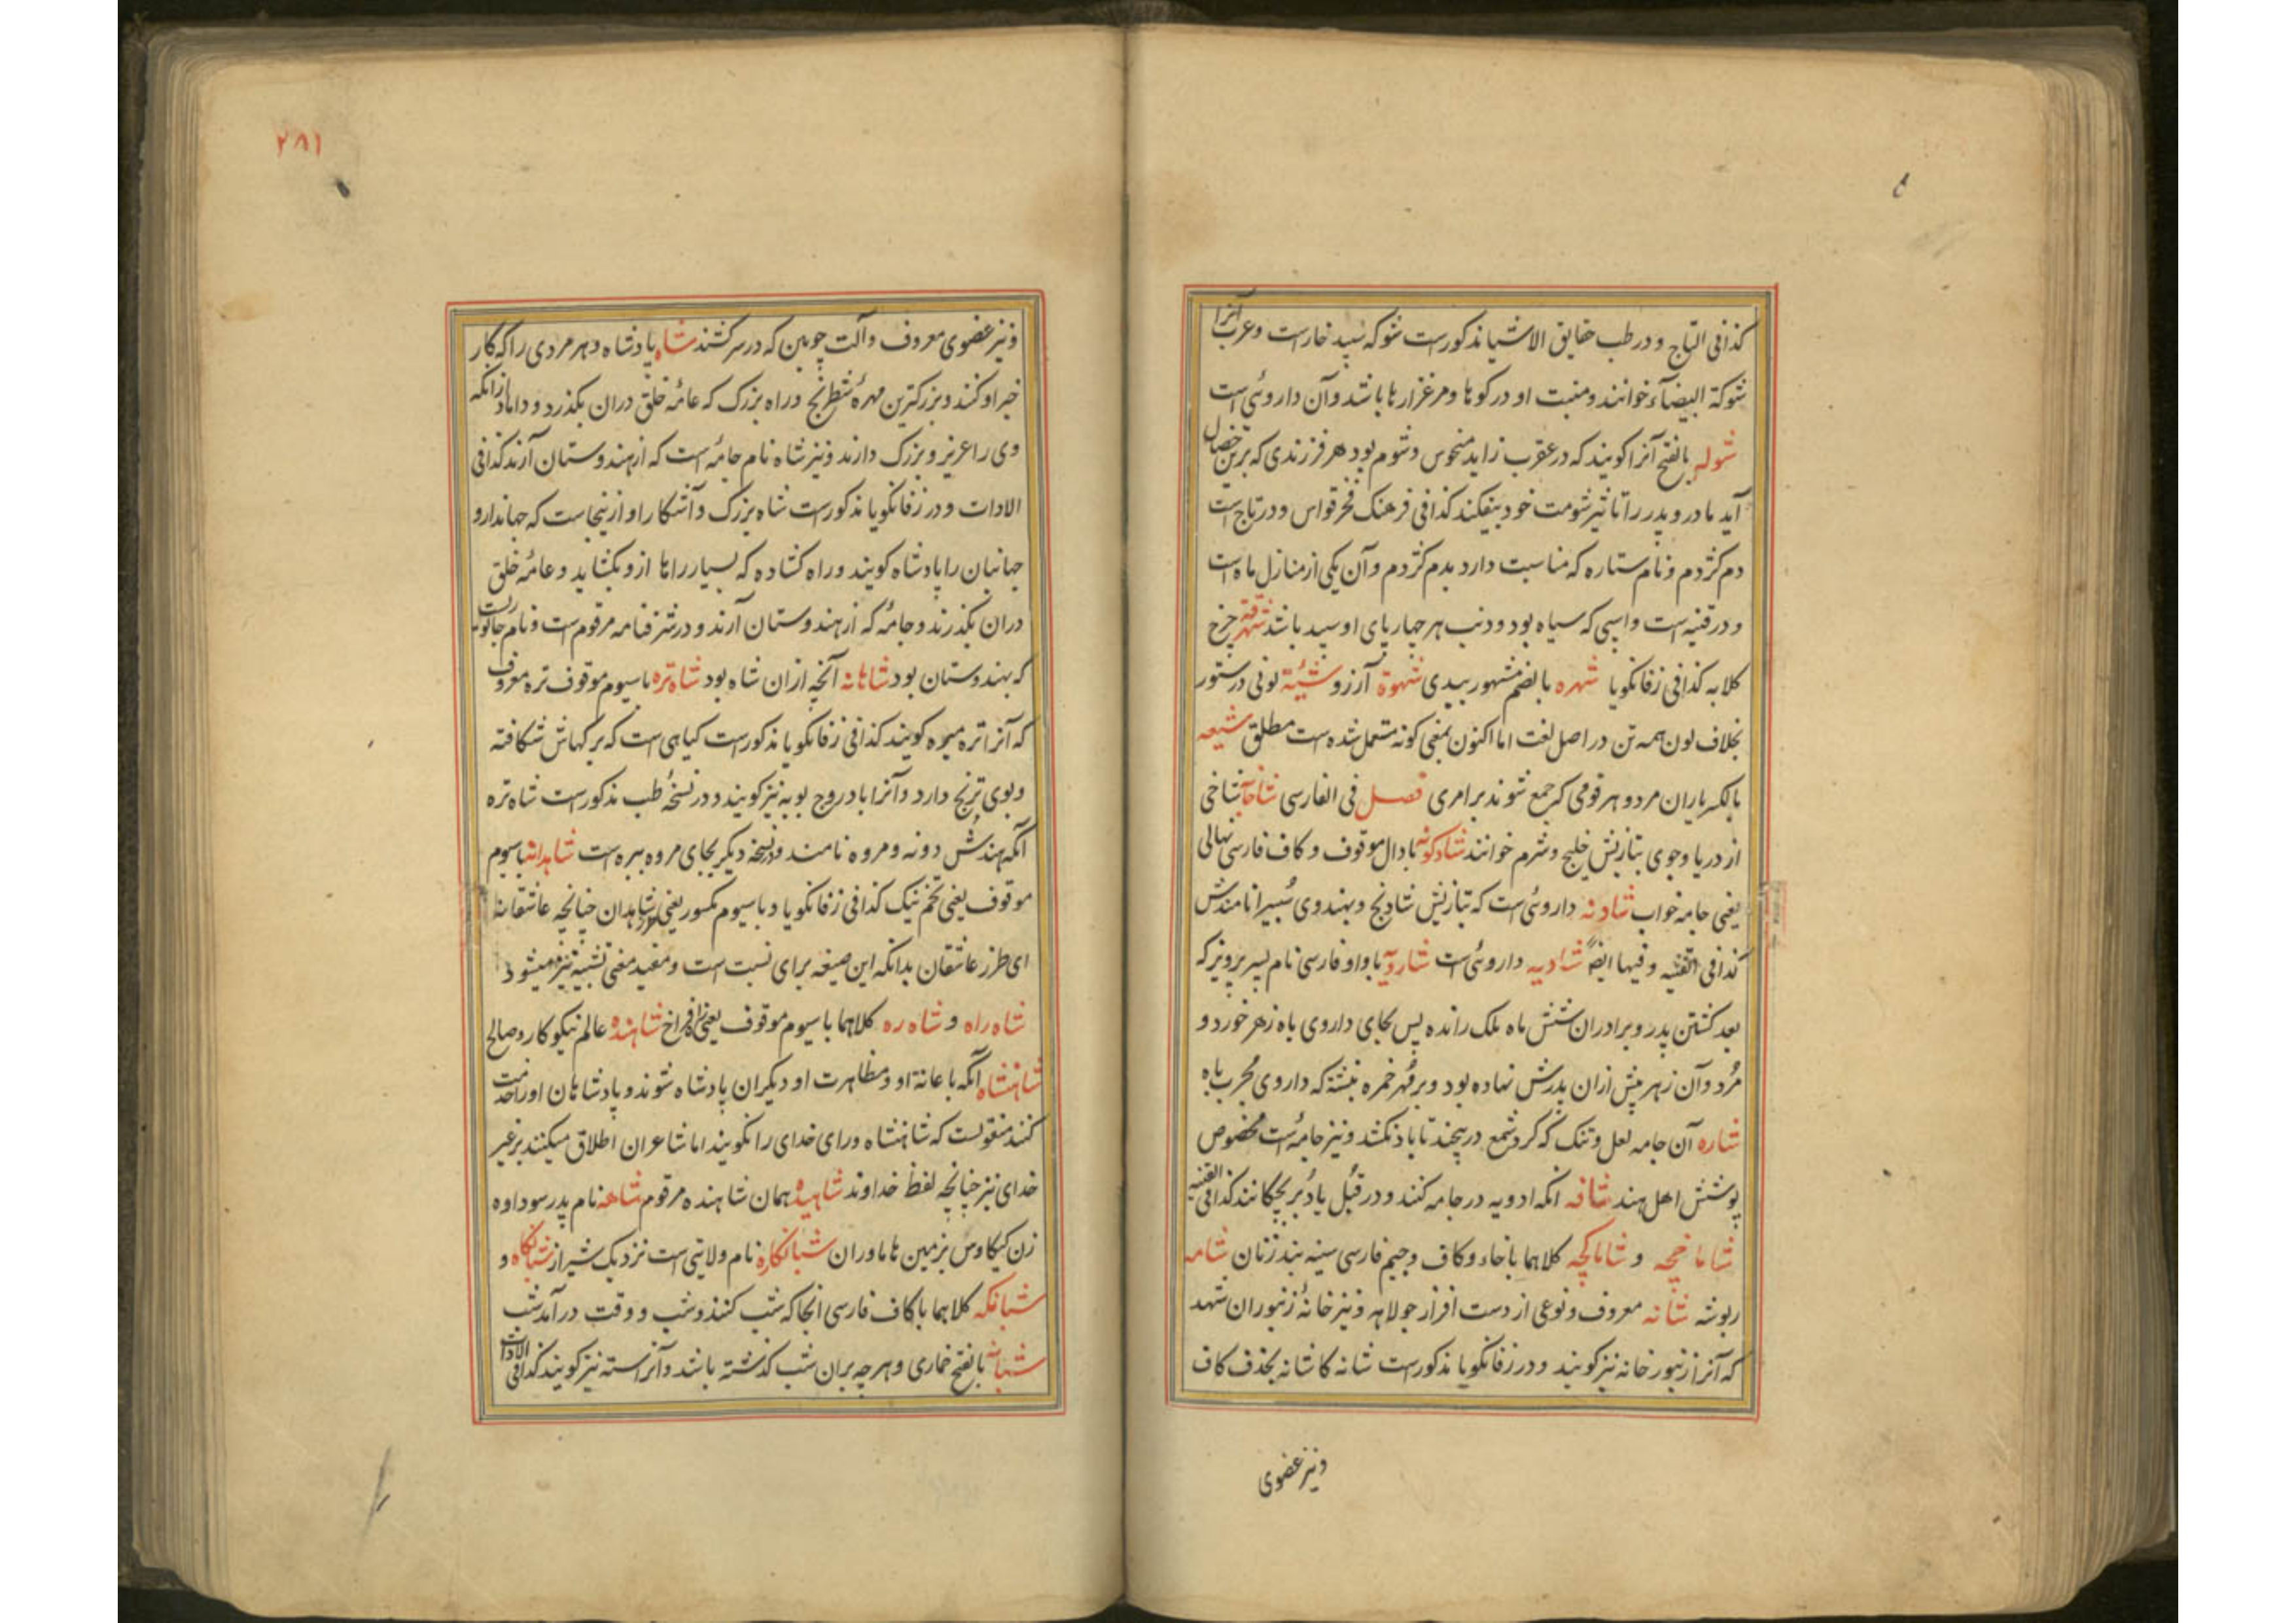 کذافی التاج و در طب حقایق الاشیا مذکورست شوکه سپید خارست و عرب آنرا
شوکة البیضاء خوانند و منبت او در کوها و مرغزارها باشد و آن داروئی است
شوله بالفتح آنرا کویند که در عقرب زاید منحوس و شوم بود هر فرزندی که برین خصال
آید مادر و پدر را تاثیر شومت خود بیفکند کذافی فرهنک فخرقواس و در تاج است
دم کژدم و نام ستاره که مناسبت دارد بدم کژدم و آن یکی از منازل ماه است
و در قنیه است و اسپی که سیاه بود و ذنب هر چهار پای او سپید باشد شهرقه چرخ
کلابه کذافی زفانکویا شهره بالضم مشهور بیدی شهوة آرزو شیئة لونی در ستور
بخلاف لون همه تن در اصل لغت اما اکنون بمعنی کونه مستعمل شده است مطلق شیعه
بالکسر یاران مرد و هر قومی که جمع شوند بر امری فصل فی الفارسی شاخآبه شاخی
از دریا و جوی بتازیش خلیج و شرم خوانند شادکونه بادال موقوف و کاف فارسی نهالی
یعنی جامه خواب شادنه داروئی است که بتازیش شادنج و بهندوی نامندش
کذافی القنیه و فیها ایضاً شادیه داروئی است شارویه با واو فارسی نام پسر پرویز که
بعد کشتن پدر و برادران شش ماه ملک رانده پس بجای داروی باه زهر خورد و
مرد و آن زهر پیش ازان پدرش نهاده بود و بر مهر خمره نبشته که داروی مجرب باه
شاره آن جامه لعل و تنک که کرد شمع در پیچند تا باد نکشد و نیز جامهٔ است مخصوص
پوشش اهل هند شافه انکه ادویه در جامه کنند و در قبل یا دبر بچکانند کذافی القنیه
شاماخچه و شاماکچه کلاهما باخاء و کاف و جیم فارسی سینه بند زنان شامه
ربوشه شانه معروف و نوعی از دست افزار جولاهه و نیز خانهٔ زنبوران شهد
که آنرا زنبور خانه نیز کویند و در زفانکویا مذکورست شانه کاشانه بحذف کاف
و نیز عضوی
۲۸۱
و نیز عضوی معروف و آلت چوبین که در سر کشند شاه پادشاه و هر مردی را که کار
خیر او کند و بزرکترین مهرهٔ شطرنج و راه بزرک که عامهٔ خلق دران بکذرد و داماد زانکه
وی را عزیز و بزرک دارند و نیز شاه نام جامهٔ است که از هندوستان آرند کذافی
الادات و در زفانکویا مذکورست شاه بزرک و آشکارا و ازینجاست که جهاندار و
جهانبان را پادشاه کویند و راه کشاده که بسیار راها ازو بکشاید و عامهٔ خلق
دران بکذرند و جامهٔ که از هندوستان آرند و در شرفنامه مرقوم است و نام جانوریست
که بهندوستان بود شاهانه آنچه ازان شاه بود شاه تره با سیوم موقوف تره معروف
که آنرا تره میوه کویند کذافی زفانکویا مذکورست کیاهی است که برکهاش شکافته
و بوی ترنج دارد و آنرا بادروج بویه نیز کویند و در نسخهٔ طب مذکورست شاه تره
آنکه هندش دونه و مروه نامند و در نسخه دیکر بجای مروه بیره است شاهدانه با سیوم
موقوف یعنی تخم نیک کذافی زفانکویا و با سیوم مکسور یعنی طرز شاهدان چنانچه عاشقانه
ای طرز عاشقان بدانکه این صیغه برای نسبت است و مفید معنی تشبیه نیز میشود
شاه راه و شاه ره کلاهما با سیوم موقوف یعنی راه فراخ شاهنده عالم نیکوکار و صالح
شاهنشاه آنکه با عانة او و مظاهرت او دیکران پادشاه شوند و پادشاهان او را خدمت
کنند منقولست که شاهنشاه ورای خدای را نکویند اما شاعران اطلاق میکنند بر غیر
خدای نیز چنانچه لفظ خداوند شاهیده همان شاهنده مرقوم شاهه نام پدر سوداوه
زن کیکاوس بزمین هاماوران شبانکاره نام ولایتی است نزدیک شیراز شبانکاه و
شبانکه کلاهما با کاف فارسی انجا که شب کنند و شب و وقت درآمد شب
شبانه بالفتح خماری و هر چه بران شب کذشته باشد و آنرا سته نیز کویند کذافی الادات